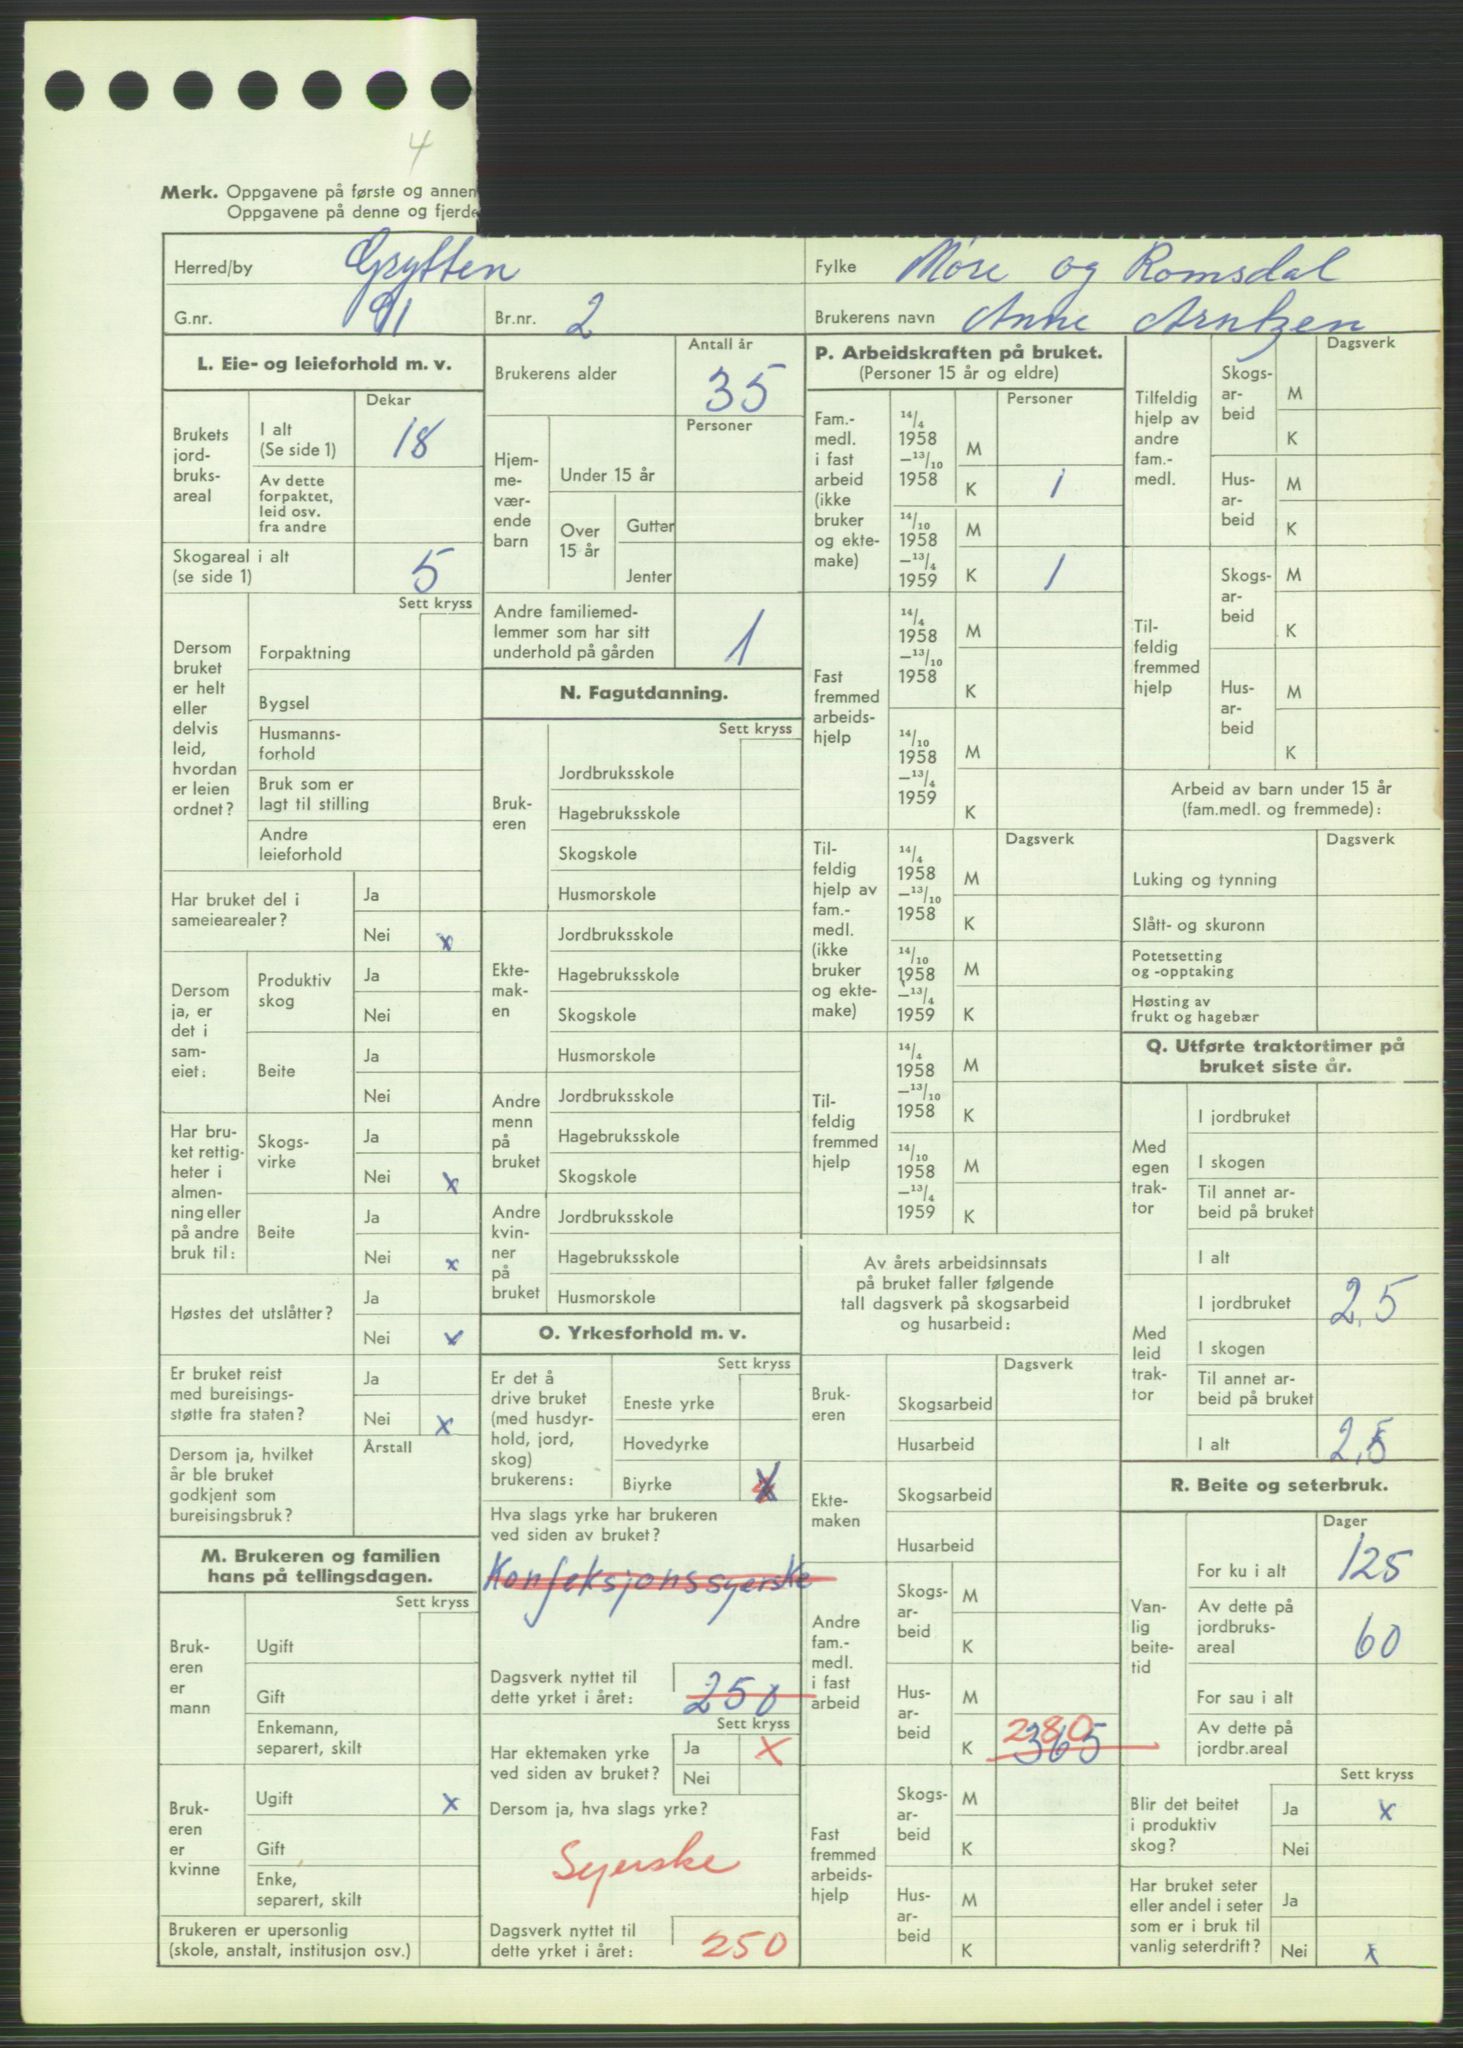 4
Merk. Oppgavene på første og annen
Oppgavene på denne og fjerde
Herred/by Grytten
Fylke Møre og Romsdal
G.nr. 91 Br.nr. 2
Brukerens navn Anne Arntzen
L. Eie- og leieforhold m. v.
Dekar
Brukets jord-bruks-areal
I alt (Se side 1) 18
Av dette forpaktet, leid osv. fra andre
Skogareal i alt (se side 1) 5
Sett kryss
Dersom bruket er helt eller delvis leid, hvordan er leien ordnet?
Forpaktning
Bygsel
Husmanns-forhold
Bruk som er lagt til stilling
Andre leieforhold
Har bruket del i sameiearealer?
Ja
Nei x
Dersom ja, er det i sam-eiet:
Produktiv skog
Ja
Nei
Beite
Ja
Nei
Har bru-ket rettig-heter i almen-ning eller på andre bruk til:
Skogs-virke
Ja
Nei x
Beite
Ja
Nei x
Høstes det utslåtter?
Ja
Nei x
Er bruket reist med bureisings-støtte fra staten?
Ja
Nei x
Dersom ja, hvilket år ble bruket godkjent som bureisingsbruk?
Årstall
M. Brukeren og familien hans på tellingsdagen.
Sett kryss
Bruk-eren er mann
Ugift
Gift
Enkemann, separert, skilt
Bruk-eren er kvinne
Ugift x
Gift
Enke, separert, skilt
Brukeren er upersonlig (skole, anstalt, institusjon osv.)
Antall år
Brukerens alder 35
Personer
Hjem-me-vær-ende barn
Under 15 år
Over 15 år
Gutter
Jenter
Andre familiemed-lemmer som har sitt underhold på gården 1
N. Fagutdanning.
Sett kryss
Bruk-eren
Jordbruksskole
Hagebruksskole
Skogskole
Husmorskole
Ekte-mak-en
Jordbruksskole
Hagebruksskole
Skogskole
Husmorskole
Andre menn på bruket
Jordbruksskole
Hagebruksskole
Skogskole
Andre kvin-ner på bruket
Jordbruksskole
Hagebruksskole
Husmorskole
O. Yrkesforhold m. v.
Sett kryss
Er det å drive bruket (med husdyr-hold, jord, skog) brukerens:
Eneste yrke
Hovedyrke
Biyrke x
Hva slags yrke har brukeren ved siden av bruket?
Konfeksjonssyerske
Dagsverk nyttet til dette yrket i året: 250
Sett kryss
Har ektemaken yrke ved siden av bruket?
Ja x
Nei
Dersom ja, hva slags yrke?
Syerske
Dagsverk nyttet til dette yrket i året: 250
P. Arbeidskraften på bruket.
(Personer 15 år og eldre)
Personer
Fam.-medl. i fast arbeid (ikke bruker og ekte-make)
14/4 1958 –13/10 1958
M
K 1
14/10 1958 –13/4 1959
M
K 1
Fast fremmed arbeids-hjelp
14/4 1958 –13/10 1958
M
K
14/10 1958 –13/4 1959
M
K
Dagsverk
Til-feldig hjelp av fam.-medl. (ikke bruker og ekte-make)
14/4 1958 –13/10 1958
M
K
14/10 1958 –13/4 1959
M
K
Til-feldig fremmed hjelp
14/4 1958 –13/10 1958
M
K
14/10 1958 –13/4 1959
M
K
Av årets arbeidsinnsats på bruket faller følgende tall dagsverk på skogsarbeid og husarbeid:
Dagsverk
Bruk-eren
Skogsarbeid
Husarbeid
Ekte-maken
Skogsarbeid
Husarbeid
Andre fam.-medl. i fast arbeid
Skogs-ar-beid
M
K
Hus-ar-beid
M
K 365 280
Fast fremmed arbeids-hjelp
Skogs-ar-beid
M
K
Hus-ar-beid
M
K
Dagsverk
Tilfeldig hjelp av andre fam.-medl.
Skogs-ar-beid
M
K
Hus-ar-beid
M
K
Til-feldig fremmed hjelp
Skogs-ar-beid
M
K
Hus-ar-beid
M
K
Arbeid av barn under 15 år (fam.medl. og fremmede):
Dagsverk
Luking og tynning
Slått- og skuronn
Potetsetting og -opptaking
Høsting av frukt og hagebær
Q. Utførte traktortimer på bruket siste år.
Med egen trak-tor
I jordbruket
I skogen
Til annet ar-beid på bruket
I alt
Med leid trak-tor
I jordbruket 2,5
I skogen
Til annet ar-beid på bruket
I alt 2,5
R. Beite og seterbruk.
Dager
Van-lig beite-tid
For ku i alt 125
Av dette på jordbruks-areal 60
For sau i alt
Av dette på jordbr.areal
Sett kryss
Blir det beitet i produktiv skog?
Ja x
Nei
Har bruket seter eller andel i seter som er i bruk til vanlig seterdrift?
Ja
Nei x